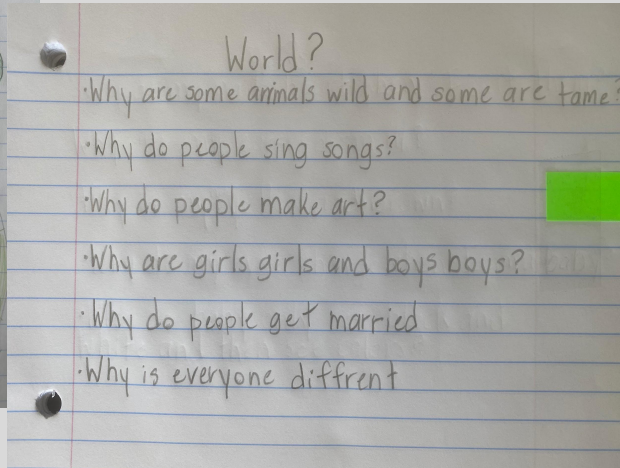 World?
·Why are some animals wild and some are tame?
·Why do people sing songs?
·Why do people make art?
·Why are girls girls and boys boys?
·Why do people get married
·Why is everyone diffrent